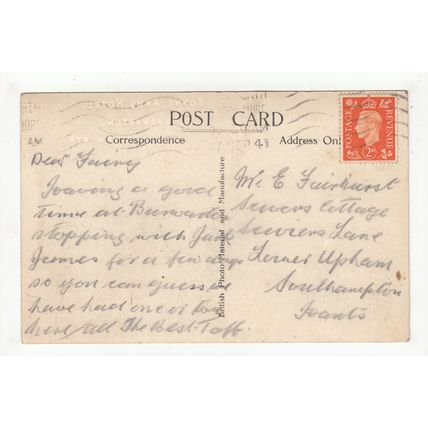 POST CARD
Correspondence
Address Onl
POSTAGE
REVENUE
2D
AM
SEP 41
British Photo Material and Manufacture
Dear
Having a good
time at
stopping with
James for a few days
so you can guess we
have had one or two
here all The Best Taff.
Mr E Fairhurst
Sewers Cottage
Lane
Lower Upham
Southampton
Hants